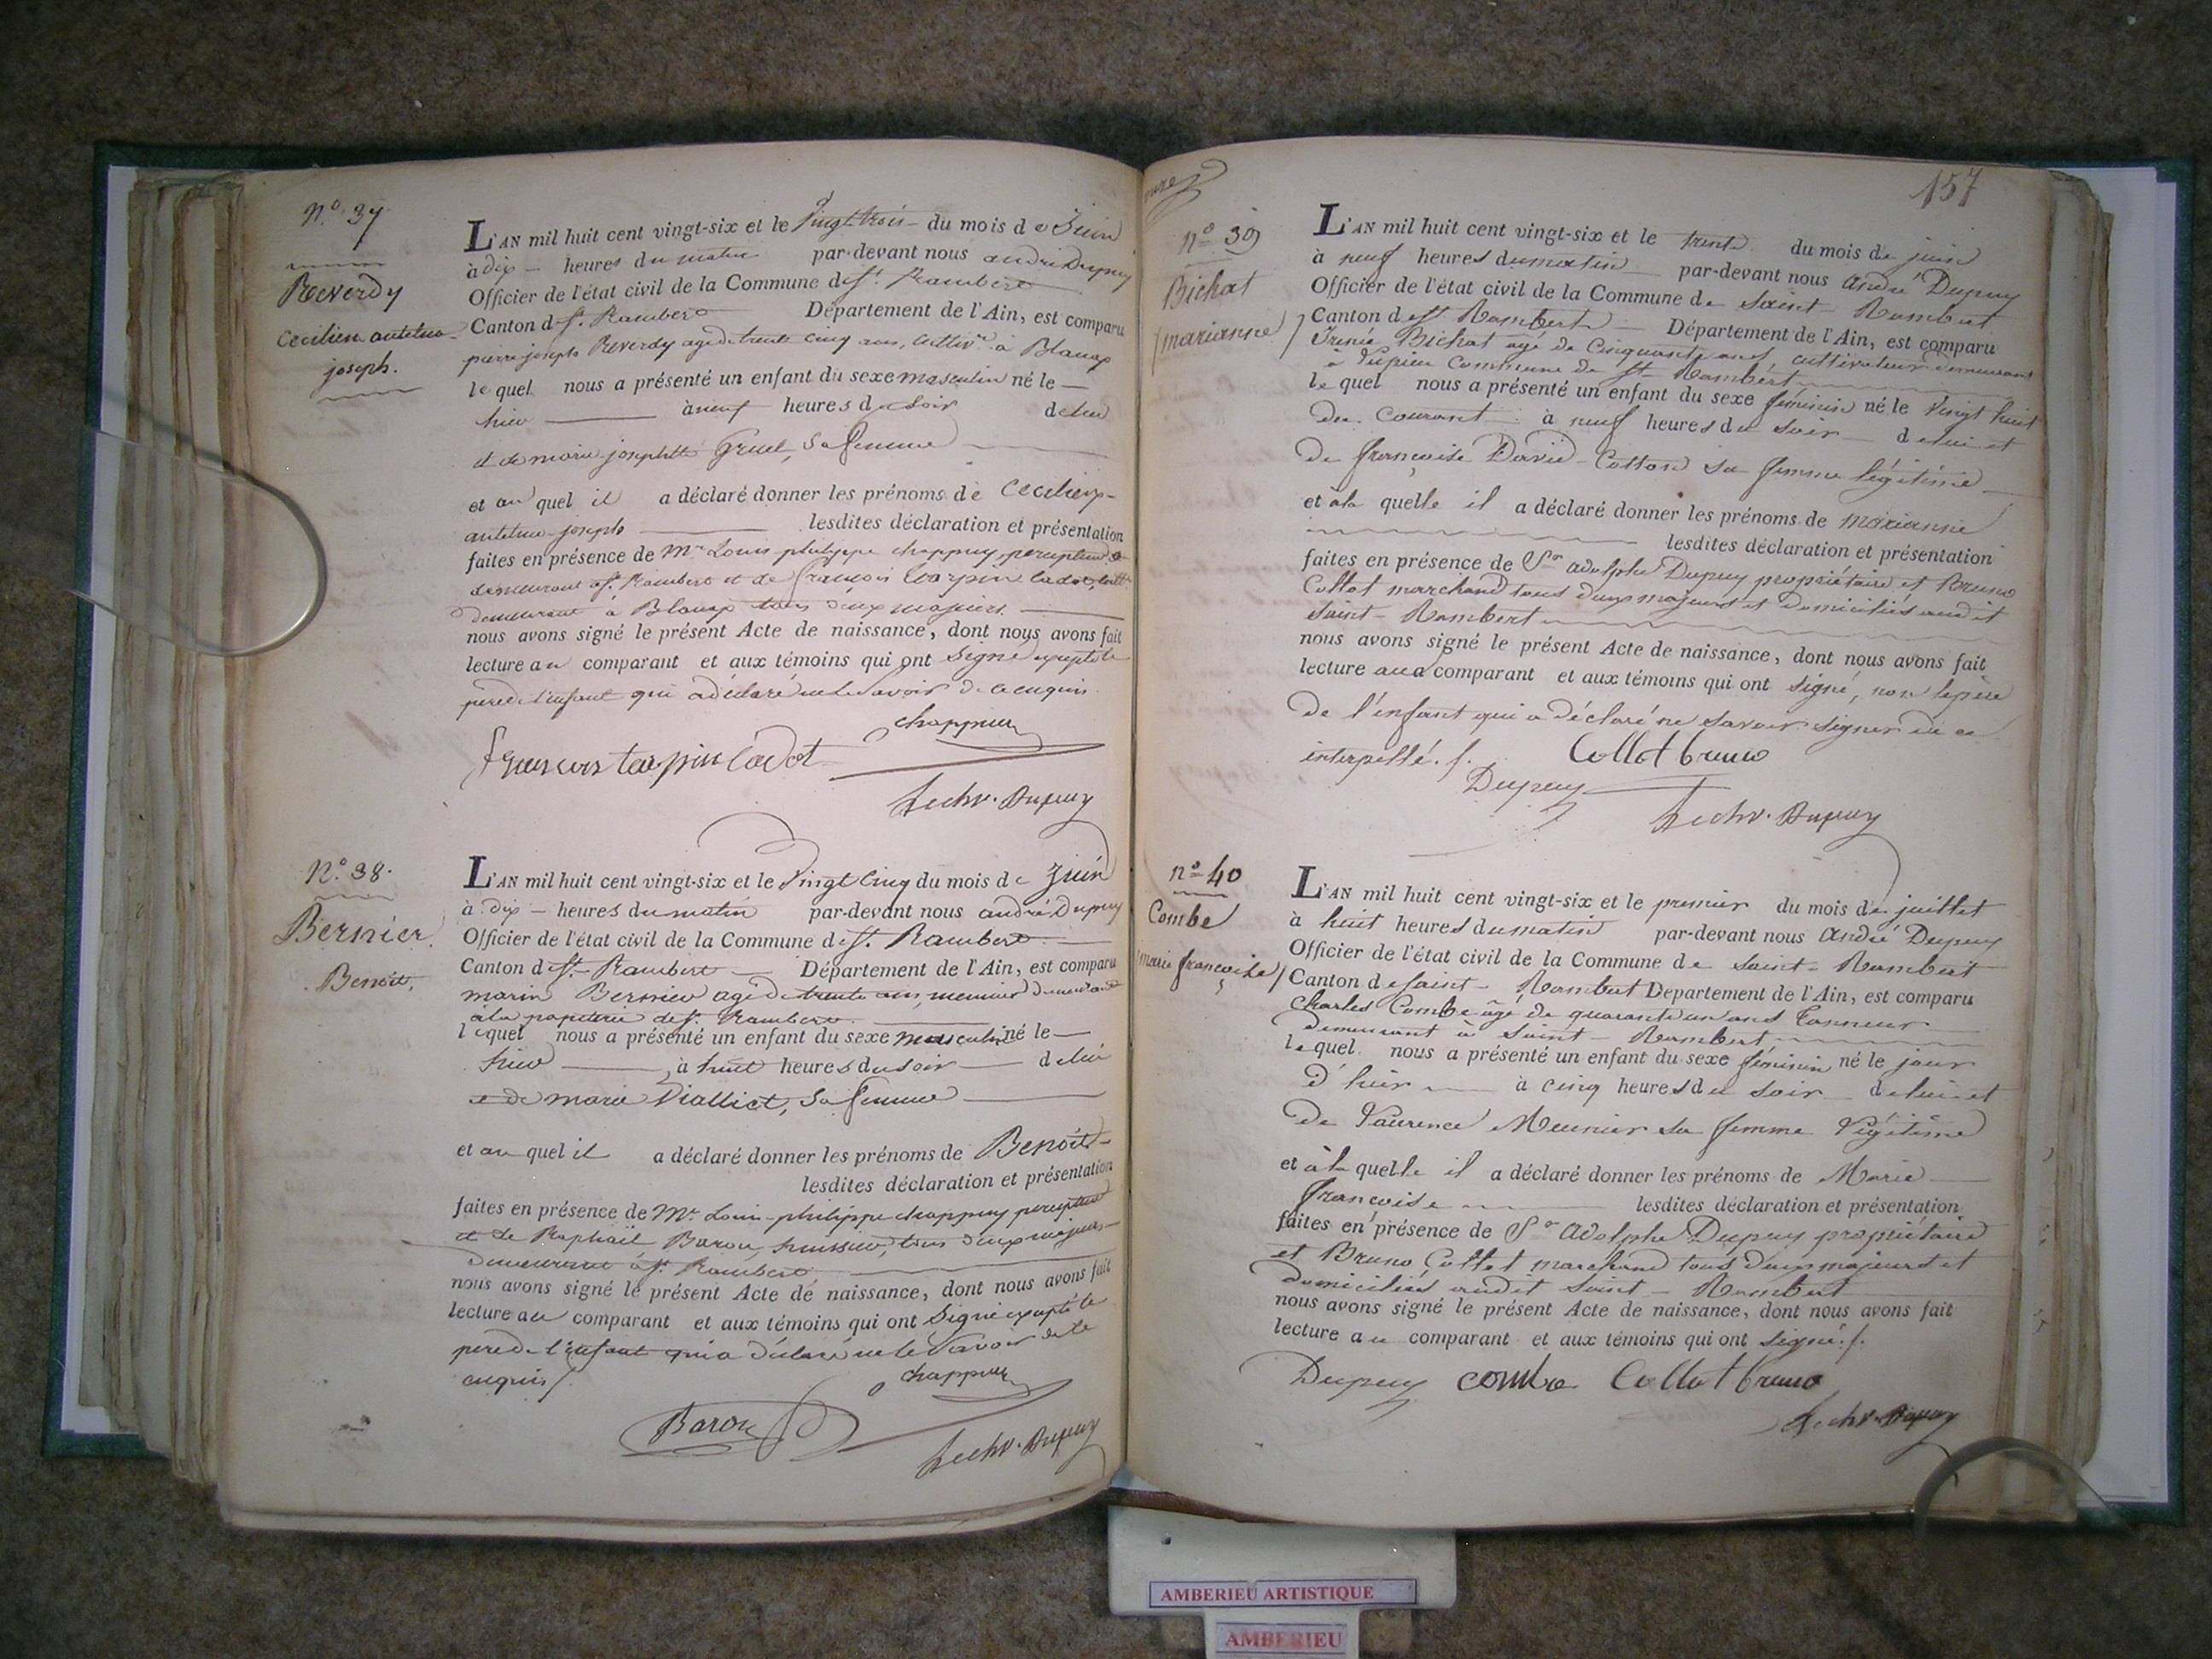 N.o 37
Reverdy
Cecilien antelme
joseph.
L'AN mil huit cent vingt-six et le Vingt trois du mois de Juin
à dix heures du matin par-devant nous andré Dupuy
Officier de l'état civil de la Commune de St. Rambert
Canton de St. Rambert Département de l'Ain, est comparu
pierre joseph Reverdy agé de trente cinq ans, cultivr. à Blanaz
lequel nous a présenté un enfant du sexe masculin né le
hier à neuf heures du soir de lui
et de marie josephte Gruel, Sa femme
et au quel il a déclaré donner les prénoms de Cecilien
antelme joseph lesdites déclaration et présentation
faites en présence de Mr. Louis philippe chappuy, percepteur
demeurant à St. Rambert et de françois tarpin cadot, cultr.
demeurant à Blanaz tous deux majeurs
nous avons signé le présent Acte de naissance, dont nous avons fait
lecture au comparant et aux témoins qui ont Signé excepté le
pere de l'enfant qui a déclaré ne le Savoir de ce enquis.
chappuy
francois tarpin Cadot
Dupuy
N.o 38.
Bernier
Benoit.
L'AN mil huit cent vingt-six et le Vingt Cinq du mois de Juin
à dix heures du matin par-devant nous andré Dupuy
Officier de l'état civil de la Commune de St. Rambert
Canton de St. Rambert Département de l'Ain, est comparu
marin Bernier agé de trente ans, demeurant
à la papeterie de St. Rambert
lequel nous a présenté un enfant du sexe masculin né le
hier à huit heures du soir de lui
et de marie Dialliet, Sa femme
et au quel il a déclaré donner les prénoms de Benoit
lesdites déclaration et présentation
faites en présence de Mr. Louis philippe chappuy percepteur
et de Raphaël Baron, huissier, tous deux majeurs
demeurant à St. Rambert
nous avons signé le présent Acte de naissance, dont nous avons fait
lecture au comparant et aux témoins qui ont Signé excepté le
pere de l'enfant qui a déclaré ne le Savoir de ce
enquis
chappuy
Baron
Dupuy
157
no 39
Bichat
(marianne)
L'AN mil huit cent vingt-six et le trente du mois de juin
à neuf heures du matin par-devant nous André Dupuy
Officier de l'état civil de la Commune de Saint-Rambert
Canton de St Rambert Département de l'Ain, est comparu
Irénée Bichat agé de Cinquante ans, cultivateur demeurant
à Vupieu Commune de St Rambert
lequel nous a présenté un enfant du sexe féminin né le Vingt huit
du Courant à neuf heures du Soir de lui et
de françoise David-Cotton sa femme légitime
et à la quelle il a déclaré donner les prénoms de marianne
lesdites déclaration et présentation
faites en présence de Sr. adolphe Dupuy propriétaire et Bruno
Collot marchand tous deux majeurs et domiciliés audit
Saint-Rambert
nous avons signé le présent Acte de naissance, dont nous avons fait
lecture au comparant et aux témoins qui ont signé, non le père
de l'enfant qui a déclaré ne savoir signer de ce
interpellé.
Collot bruno
Dupuy
Dupuy
no 40
Combe
(marie françoise)
L'AN mil huit cent vingt-six et le premier du mois de juillet
à huit heures du matin par-devant nous André Dupuy
Officier de l'état civil de la Commune de Saint-Rambert
Canton de Saint-Rambert Département de l'Ain, est comparu
Charles Combe âgé de quarante un ans Tanneur
demeurant à Saint-Rambert
lequel nous a présenté un enfant du sexe féminin né le jour
d'hier à cinq heures du soir de lui et
de Laurence Meunier sa femme légitime
et à la quelle il a déclaré donner les prénoms de Marie
françoise lesdites déclaration et présentation
faites en présence de Sr. Adolphe Dupuy propriétaire
et Bruno Collot marchand tous deux majeurs et
domiciliés audit Saint-Rambert
nous avons signé le présent Acte de naissance, dont nous avons fait
lecture au comparant et aux témoins qui ont signé.
Dupuy combe Collot bruno
Dupuy
AMBERIEU ARTISTIQUE
AMBERIEU